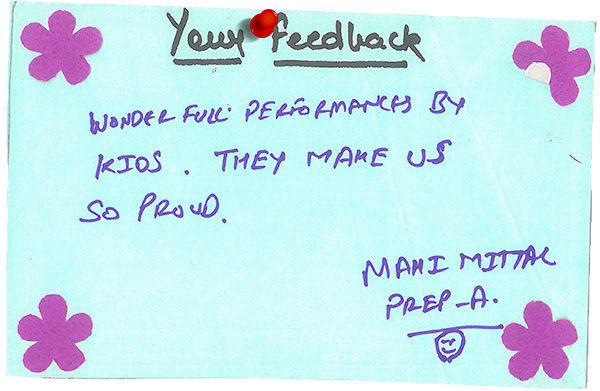 Your Feedback
WONDERFULL PERFORMANCES BY
KIDS. THEY MAKE US
SO PROUD.
MAHI MITTAL
PREP-A.